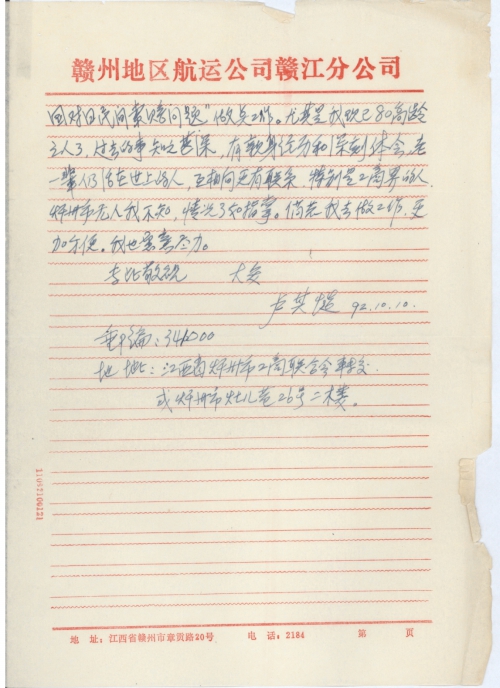 赣州地区航运公司赣江分公司
国对日民间索赔问题"做点工作。尤其是我现已80高龄
之人了,过去的事知之甚深,有亲身经历和深刻体会,老
一辈人仍活在世上的人,互相间更有联系,特别是工商界的人,
赣州市无人我不知,情况了如指掌。倘若我去做工作,更
加方便。我也愿意尽力。
专此敬祝 大安
卢其 92.10.10.
邮编:341000
地址:江西省赣州市工商联合会转交
或赣州市灶儿巷26号二楼。
地 址:江西省赣州市章贡路20号 电 话:2184 第 页